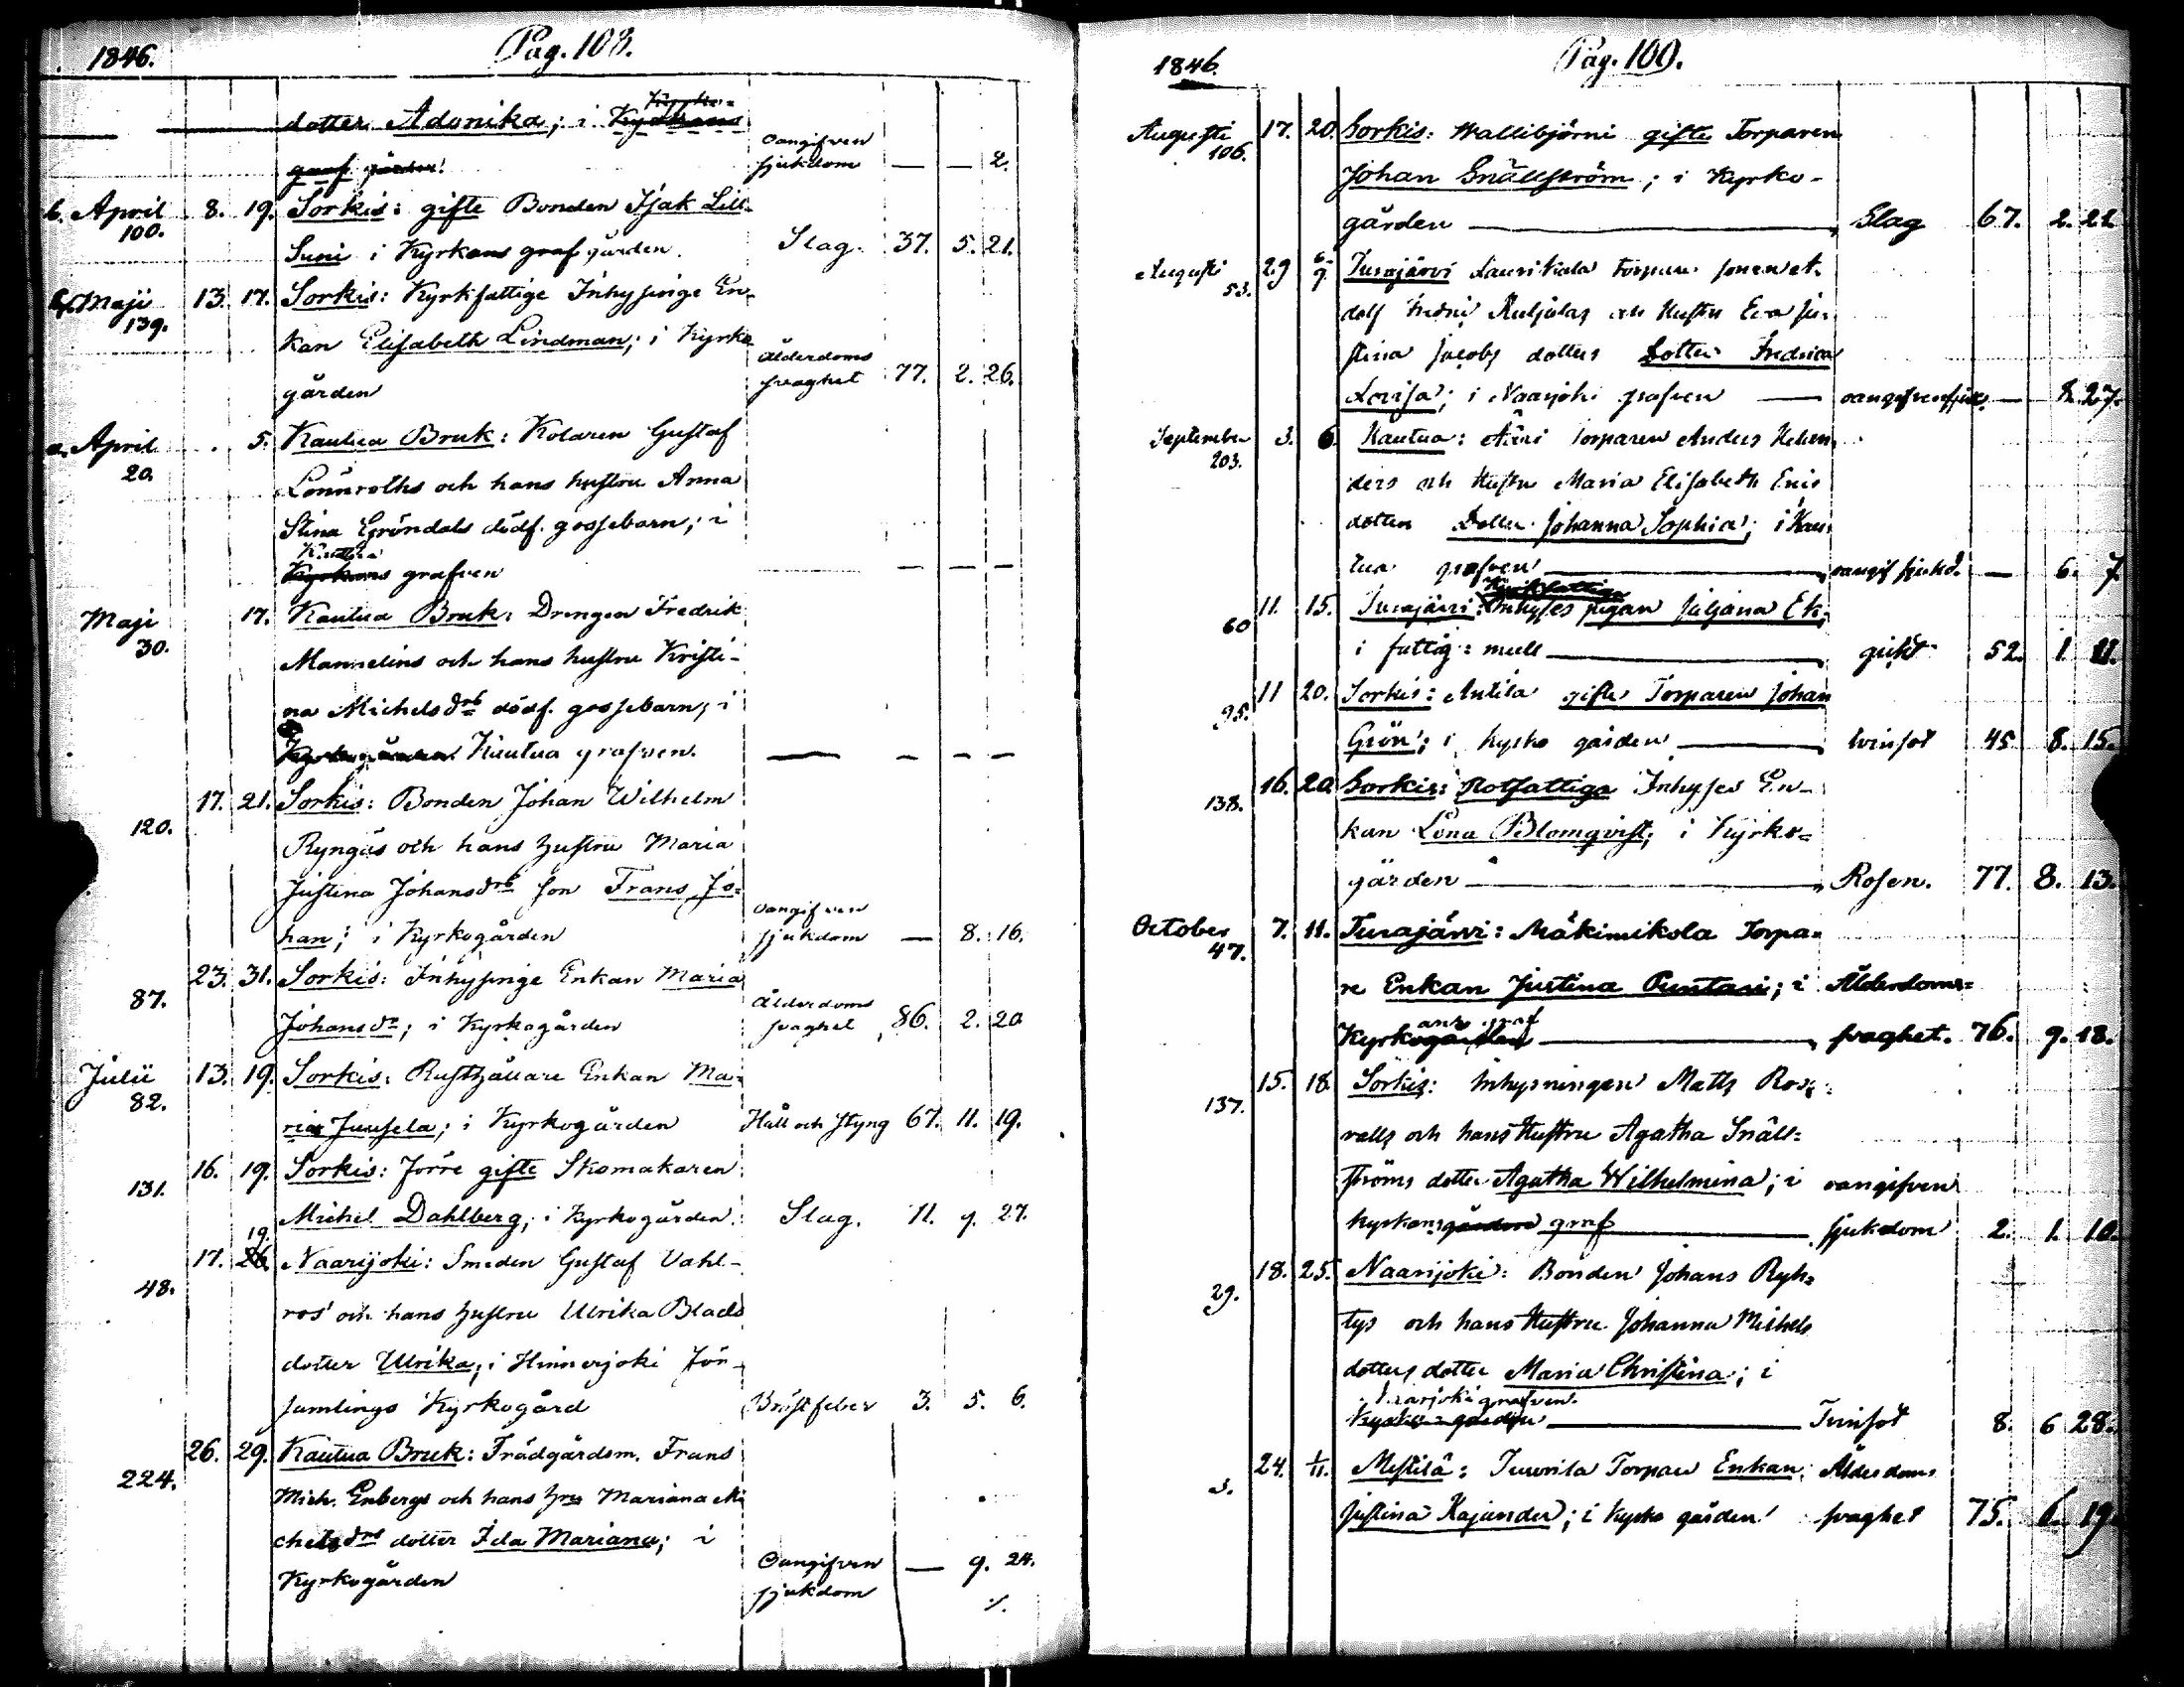 1846. Pag. 108.
dotter Adonika; i Kyrkans
graf
Oangifven
sjukdom — — 2.
b. April 8. 19. Sorkis: gifte Bonden Isak Lill-
100.
Suni i Kyrkans graf gården. Slag. 37. 5. 21.
Maji 13. 17. Sorkis: Kyrkfattige Inhysinge En-
139.
kan Elisabeth Lindman; i Kyrko
gården Ålderdoms
svaghet 77. 2. 26.
a. April 5. Kautua Bruk: Kolaren Gustaf
20.
Lönnroths och hans hustru Anna
Stina Gröndals dödf. gossebarn; i
Kautua
Kyrkans grafven — — —
Maji 17. Kautua Bruk: Drengen Fredrik
30.
Mannelins och hans hustru Kristi-
na Michelsdrs dödf. gossebarn; i
Kyrkogården Kautua grafven. — — — —
17. 21. Sorkis: Bonden Johan Wilhelm
120.
Ryngäs och hans hustru Maria
Justina Johansdrs son Frans Jo-
han; i Kyrkogården Oangifven
sjukdom — 8. 16.
23. 31. Sorkis: Inhysinge Enkan Maria
87.
Johansdr; i Kyrkogården Ålderdoms
svaghet 86. 2. 20
Julii 13. 19. Sorkis: Rusthållare Enkan Ma-
82.
ria Juusela; i Kyrkogården Håll och styng 67. 11. 19.
16. 19. Sorkis: Jorre gifte Skomakaren
131.
Michel Dahlberg; i Kyrkogården. Slag. 71. 9. 27.
19.
17. 26 Naarijoki: Smeden Gustaf Vahl-
48.
ros' och hans hustru Ulrika Blads
dotter Ulrika; i Hinnerjoki För-
samlings Kyrkogård Bröstfeber 3. 5. 6.
26. 29. Kautua Bruk: Trädgårdsm. Frans
224.
Mich. Enbergs och hans hrs Mariana Mi
chelsdrs dotter Ida Mariana; i
Kyrkogården Oangifven
sjukdom — 9. 24.
1846. Pag. 109.
Augusti 17. 20. Sorkis: Wallibjörni gifte Torparen
106.
Johan Snällström; i Kyrko-
gården — Slag 67. 2. 22
Augusti 29 6/9. Turajärvi Laurikala Torpare sonen
53.
och Hustru Eva Ju-
stina Jacobs dotters Dotter Fredrica
Lovisa; i Naarijoki grafven — oangifven sjuk. — 8. 27.
September 3. 6. Kautua: Torparen Anders Helen
203.
ders och Hustru Maria Elisabeth Eris
dotters Dotter Johanna Sophia; i Kau-
tua grafven — oangif sjukd. — 6. 7.
Kyrkfattiga
11. 15. Turajärvi: Inhyses pigan Juliana Ek;
60
i fattig: mull — gikt 52. 1. 11.
11 20. Sorkis: Anttila gifte Torparen Johan
95.
Grön; i kyrko gården — tvinsot 45 8. 15.
16. 20 Sorkis: Rotfattiga Inhyses En-
138.
kan Lena Blomqvist; i Kyrko-
gården — Rosen. 77. 8. 13.
October 7. 11. Turajärvi: Mäkimikola Torpa-
47.
re Enkan Justina Puntari; i Ålderdoms-
ans graf
Kyrkogården — svaghet. 76. 9. 18.
15. 18 Sorkis: Inhysningen Matts Ros-
137.
valls och hans Hustru Agatha Snäll-
ströms dotter Agatha Wilhelmina; i oangifven
kyrkans gården graf — sjukdom 2. 1. 10.
18. 25. Naarijoki: Bonden Johans Ryh-
29.
tys och hans Hustru Johanna Michels
dotters dotter Maria Christina; i
Naarjoki grafven.
Kyrko-gården — Tvinsot 8. 6 28.
24. 1/11. Mestilä: Juvvila Torpare Enkan Ålderdoms
3.
Justina Kajander; i kyrko gården svaghet 75. 6. 19